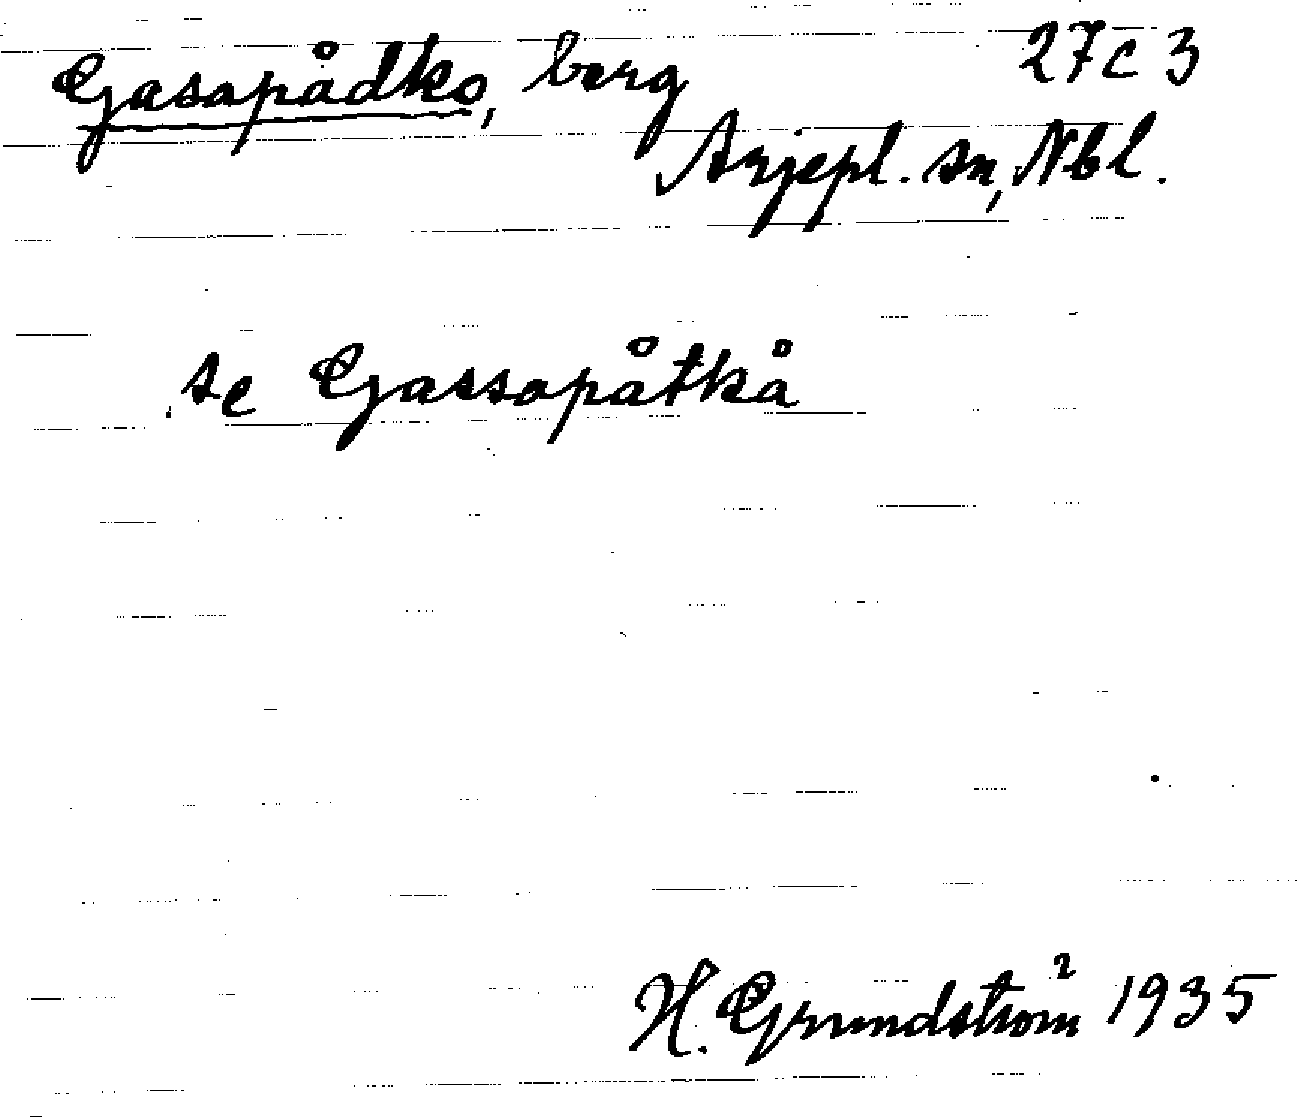 Gasapådko, berg 27c 3
Arjepl. sn, Nbl.
se Gassapåtkå
H. Grundström 1935